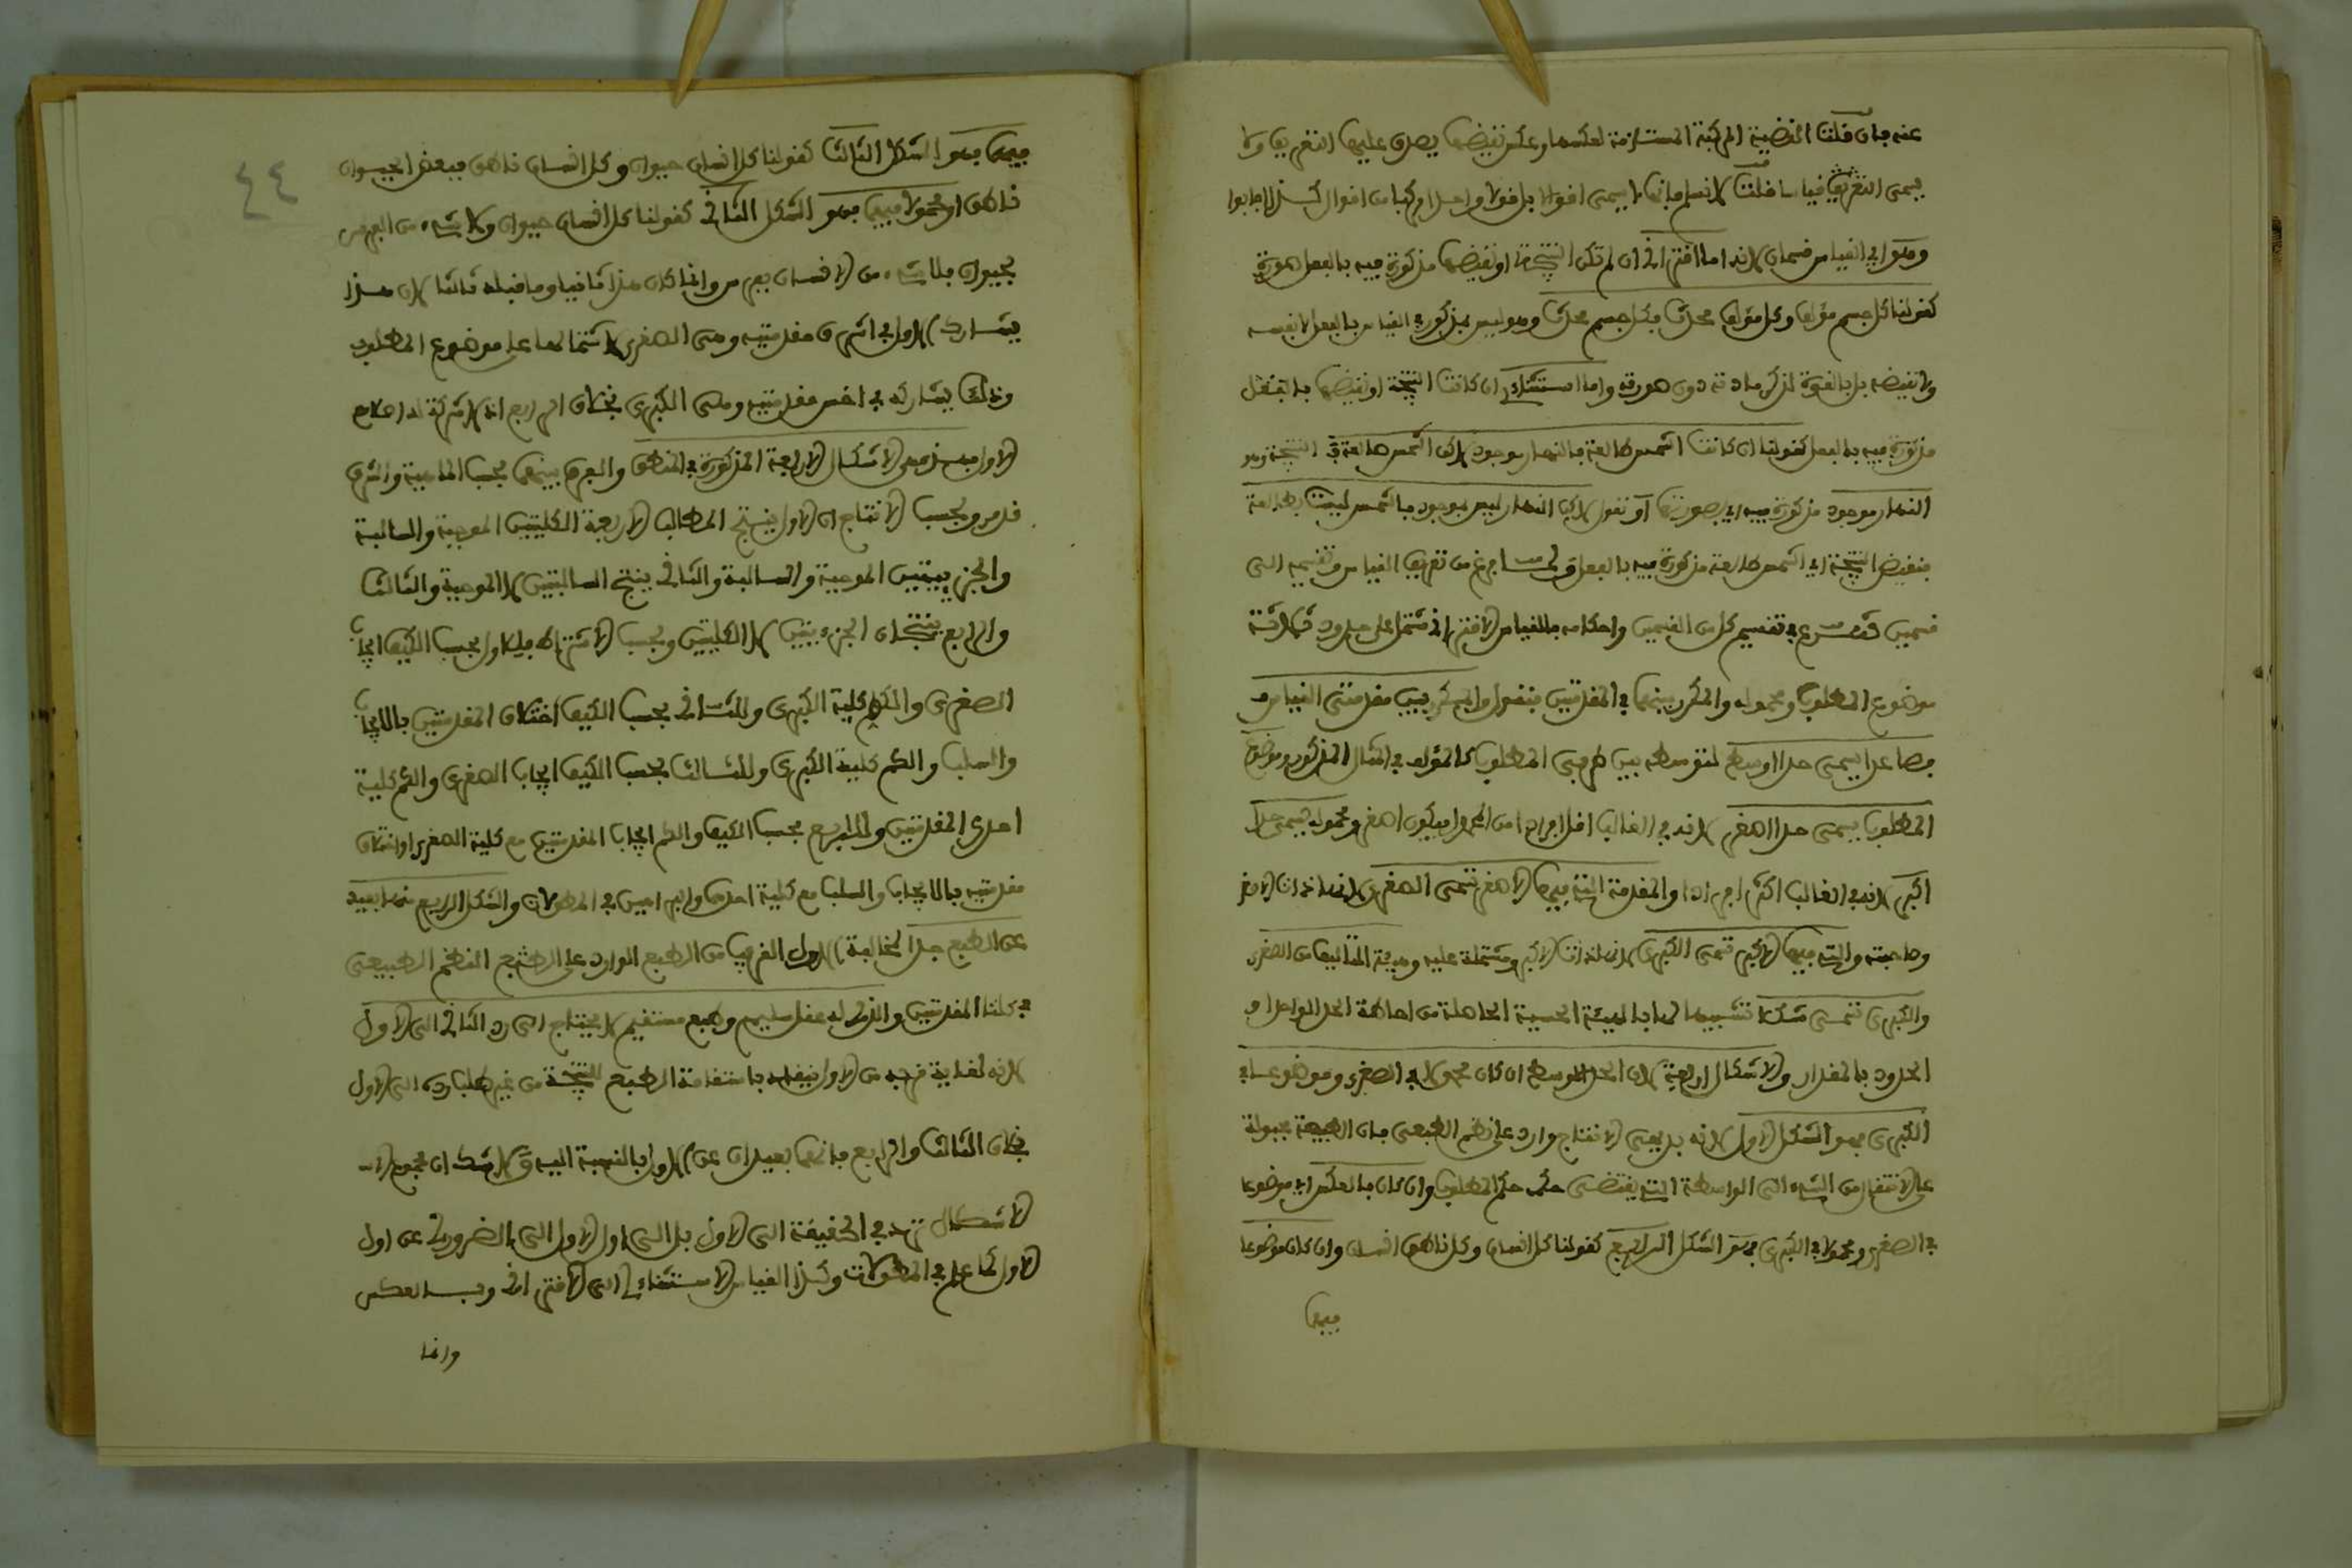 عنه فان قلت القضية المركبة المستلزمة لعكسها وعكس نقيضها يصدق عليها التعريف ولا
يسمى التعريف قياسا قلت لا نسلم فانها لا يسمى اقوالا بل قولا واحدا مركبا من اقوال كذا اجابوا
وهو اي القياس قسمان لانه اما اقتراني ان لم تكن النتيجة او نقيضها مذكورة فيه بالفعل صورة
كقولنا كل جسم مؤلف وكل مؤلف محدث فكل جسم محدث وهو ليس بمذكور في القياس بالفعل لا بنفسه
ولا نقيضه بل بالقوة لذكر مادته دون صورته واما استثنائي ان كانت النتيجة او نقيضها بالفعل
مذكورة فيه بالفعل كقولنا ان كانت الشمس طالعة فالنهار موجود لكن الشمس طالعة فـ النتيجة وهو
النهار موجود مذكورة فيه اي بصورتها او نقول لكن النهار ليس بموجود فالشمس ليست بطالعة
فنقيض النتيجة اي الشمس طالعة مذكورة فيه بالفعل ولما فرغ من تعريف القياس وتقسيمه الى
قسمين شرع في تقسيم كل من القسمين واحكامه فالقياس الاقتراني مشتمل على حدود ثلاثة
موضوع المطلوب ومحموله والمكرر بينهما في المقدمتين فنقول والمكرر بين مقدمتي القياس
فصاعدا يسمى حدا اوسط لتوسطه بين طرفي المطلوب كالمؤلف في المثال المذكور وموضوع
المطلوب يسمى حدا اصغر لانه في الغالب اقل افرادا من المحمول فيكون اصغر ومحموله يسمى حدا
اكبر لانه في الغالب اكثر افرادا والمقدمة التي فيها الاصغر تسمى الصغرى لانها ذات الاصغر
وصاحبته والتي فيها الاكبر تسمى الكبرى لانها ذات الاكبر ومشتملة عليه وهيئة التاليف من الصغرى
والكبرى تسمى شكلا تشبيها لها بالهيئة الحسية الحاصلة من احاطة الحد الواحد او
الحدود بالمقدار والاشكال اربعة لان الحد الاوسط ان كان محمولا في الصغرى وموضوعا في
الكبرى فهو الشكل الاول لانه بديهي الانتاج وارد على نظم الطبيعي فان الطبيعة مجبولة
على الانتقال من الشيء الى الواسطة التي يقتضى حكمه حكم المطلوب وان كان بالعكس اي موضوعا
في الصغرى ومحمولا في الكبرى فهو الشكل الرابع كقولنا كل انسان وكل ناطق انسان وان كان موضوعا
فيهما
٤٤
فيهما فهو الشكل الثالث كقولنا كل انسان حيوان وكل انسان ناطق فبعض الحيوان
ناطق او محمولا فيهما فهو الشكل الثاني كقولنا كل انسان حيوان ولا شيء من الفرس
بحيوان فلا شيء من الانسان بفرس وانما كان هذا ثانيا وما قبله ثالثا لان هذا
يشارك الاول في اشرف مقدمتيه وهي الصغرى لاشتمالها على موضوع المطلوب
وذلك يشاركه في اخس مقدمتيه وهي الكبرى بخلاف الرابع اذ لا شركة له اصلا مع
الاول فهذه هي الاشكال الاربعة المذكورة في المنطق والفرق بينها بحسب الماهية والشرف
قد مر وبحسب الانتاج ان الاول ينتج المطالب الاربعة الكليتين الموجبة والسالبة
والجزييتين الموجبة والسالبة والثاني ينتج السالبتين لا الموجبة والثالث
والرابع ينتجان الجزءيتين لا الكليتين وبحسب الاشتراط فللاول بحسب الكيف ايجاب
الصغرى والكم كلية الكبرى وللثاني بحسب الكيف اختلاف المقدمتين بالايجاب
والسلب والكم كلية الكبرى وللثالث بحسب الكيف ايجاب الصغرى والكم كلية
احدى المقدمتين وللرابع بحسب الكيف والكم ايجاب المقدمتين مع كلية الصغرى او اختلاف
مقدمتيه بالايجاب والسلب مع كلية احدهما والبراهين في المطولات والشكل الرابع منها بعيد
عن الطبع جدا لمخالفة الاول القريب من الطبع الوارد على النظم الطبيعي
في كلتا المقدمتين والذي له عقل سليم وطبع مستقيم لا يحتاج الى رد الثاني الى الاول
لانه لغاية قربه من الاول باستقامة الطبع النتيجة من غير طلب رده الى الاول
بخلاف الثالث والرابع فانهما بعيدان عن الاول بالنسبة اليه ولا شك ان مجموع
الاشكال ترد في الحقيقة الى الاول بل الى اول الاول الى الضروري عن اول
الاول كما علم في المطولات وكذا القياس الاستثنائي الى الاقتراني وبـالعكس
وانما